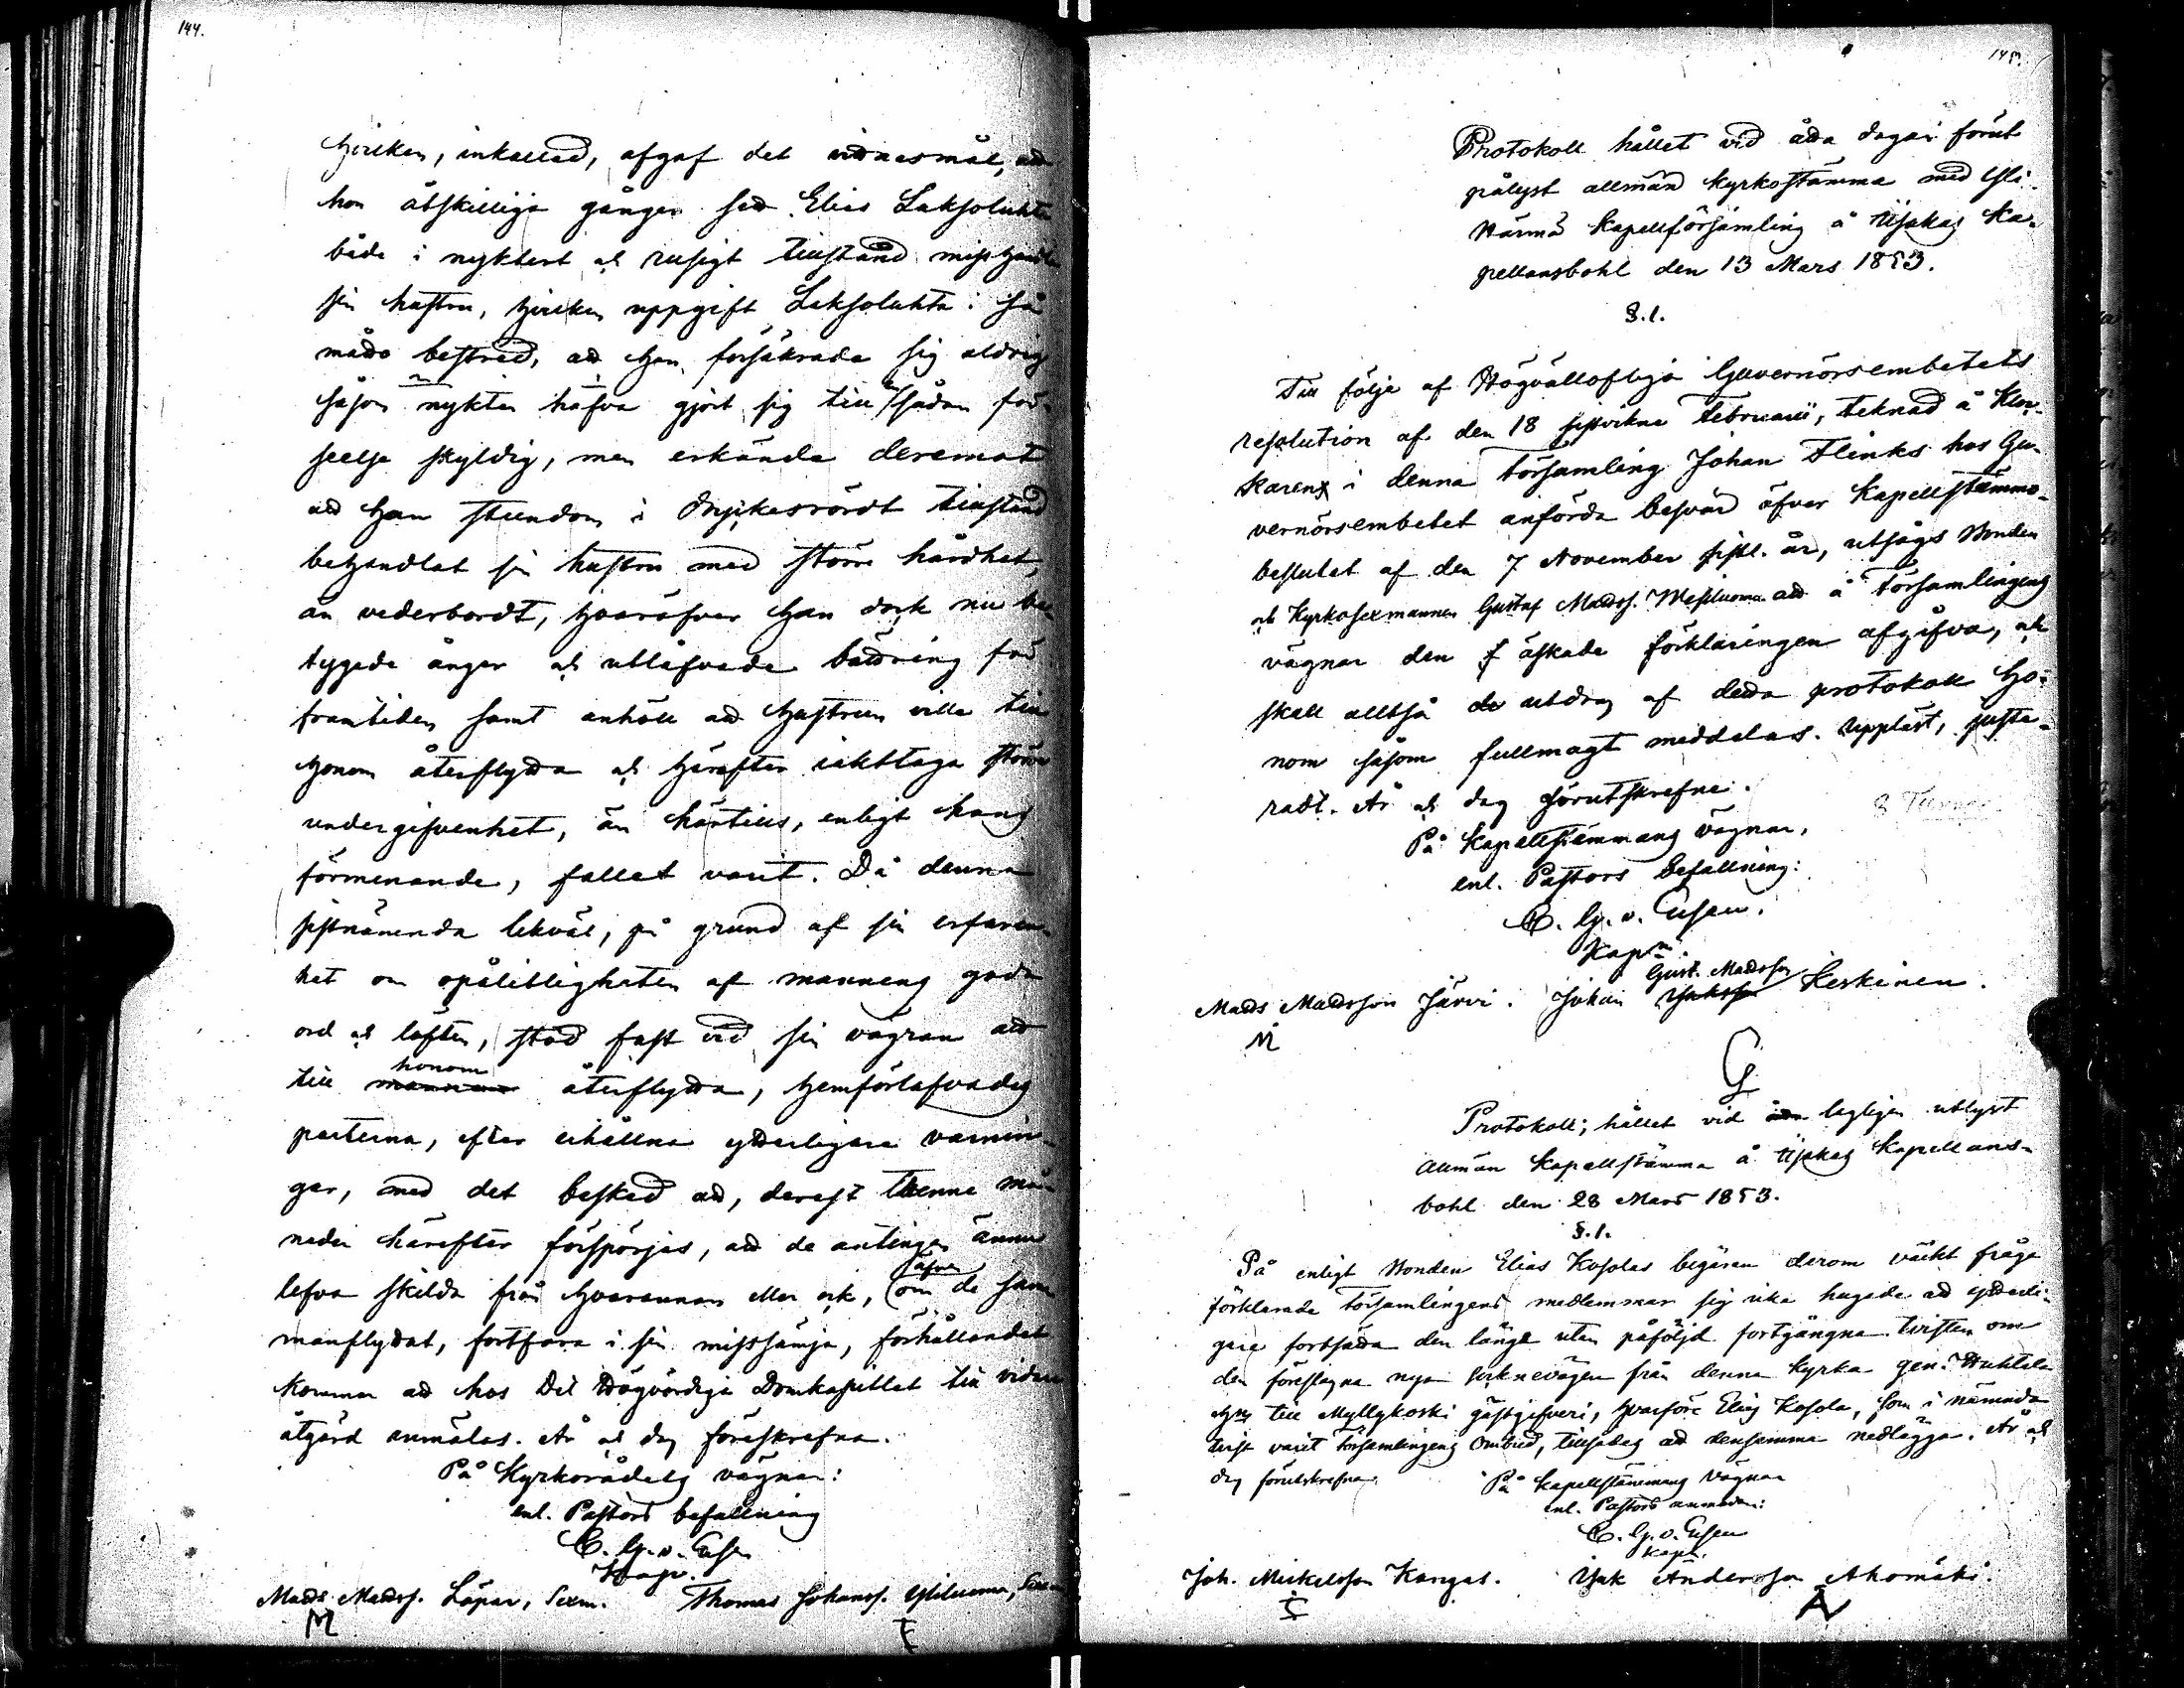 144.
hvilken, inkallad, afgaf det vittnesmål, att
hon åtskilliga gånger sett Elias Luksoluhta
både i nyktert och rusigt tillstånd misshandla
sin hustru, hvilken uppgift Luksoluhta i så
måtto bestred, att han försäkrade sig aldrig
såsom nykter hafva gjort sig till sådan för-
seelse skyldig, men erkände deremot
att han stundom i dryckesrördt tillstånd
behandlat sin hustru med större hårdhet,
än vederbordt, hvaröfver han dock nu be-
tygade ånger och utlåfvade bättring för
framtiden samt anhöll att hustrun ville till
honom återflytta och härefter iakttaga större
undergifvenhet, än härtills, enligt hans
förmenande, fallet varit. Då denna
sistnämnda likväl, på grund af sin erfaren-
het om opålitligheten af mannens goda
ord och löften, stod fast vid sin vägran att
till honom återflytta, hemförlofvades
parterna, efter erhållna ytterligare varnin-
gar, med det besked att, derest tvenne må-
nader härefter förspörjes, att de antingen ännu
lefva skilda från hvarannan eller ock, om äfven de sam-
manflyttat, fortfara i sin misssämja, förhållandet
kommer att hos Det Högvördiga Domkapitlet till vidare
åtgärd anmälas. År och dag föreskrefna.
På Kyrkorådets vägnar:
enl. Pastors befallning
C. G. v. Essen
Kapn.
Matts Mattss. Löpar, Sexm. Thomas Johanss. Yliluoma, Sexm
M T
145.
Protokoll hållet vid åtta dagar förut
pålyst allmän kyrkostämma med Yli-
Härmä Kapellförsamling å Uspakas Ka-
pellansbohl den 13 Mars 1853.
§. 1.
Till följe af Högvällofliga Guvernörsembetets
resolution af den 18 sistvikne Februarii, teknad å Kloc-
karens i denna Församling Johan Flinks hos Gu-
vernörsembetet anförda besvär öfver Kapellstämmo-
beslutet af den 7 November sistl. år, utsågs Bonden
och Kyrkosexmannen Gustaf Mattss. Mesiluoma att å Församlingens
vägnar den äskade förklaringen afgifva, och
skall alltså utdrag af detta protokoll ho-
nom såsom fullmagt meddelas. Uppläst, juste-
radt. År och dag förutskrefne.
På Kapellstämmans vägnar,
enl. Pastors befallning:
C. G. v. Essen.
Kapn.
Matts Mattsson Järvi. Johan Gust. Mattsson Keskinen.
M
G
Protokoll; hållet vid lagligen utlyst
Allmän Kapellstämma å Uspakas Kapellans-
bohl den 28 Mars 1853.
§. 1.
På enligt Bonden Elias Kosolas begäran derom väckt fråga
förklarade Församlingens medlemmar sig icke hugade att ytterli-
gare fortsätta den länge utan påföljd fortgångna tvisten om
den föreslagna nya socknevägen från denna Kyrka gen. Huhtala
by till Myllykoski gästgifveri, hvarföre Elias Kosola, som i nämnda
tvist varit Församlingens Ombud, tillsades att densamma nedlägga. År och
dag förutskrefna.
På Kapellstämmans Vägnar
enl. Pastors anmodan:
C. G. v. Essen
Kapn.
Joh. Mickelsson Kangas. Isak Andersson Ahomäki.